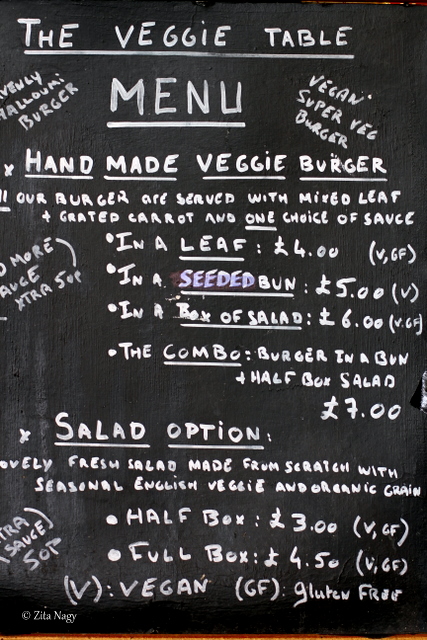 THE VEGGIE TABLE
MENU
HALLOUMI
BURGER
VEGAN
SUPER VEG
BURGER
x HAND MADE VEGGIE BURGER
OUR BURGER ARE SERVED WITH MIXED LEAF
+ GRATED CARROT AND ONE CHOICE OF SAUCE
MORE
XTRA 50p
•IN A LEAF: £4.00 (V,GF)
•IN A SEEDED BUN: £5.00 (V)
•IN A BOX OF SALAD: £6.00 (V.GF)
•THE COMBO: BURGER IN A BUN
+HALF BOX SALAD
£7.00
x SALAD OPTION:
OVELY FRESH SALAD MADE FROM SCRATCH WITH
SEASONAL ENGLISH VEGGIE AND ORGANIC GRAIN
SAUCE)
50P
• HALF BOX: £3.00 (V,GF)
• FULL BOX: £4.50 (V,GF)
(V): VEGAN (GF): GlutEN FREE
© Zita Nagy